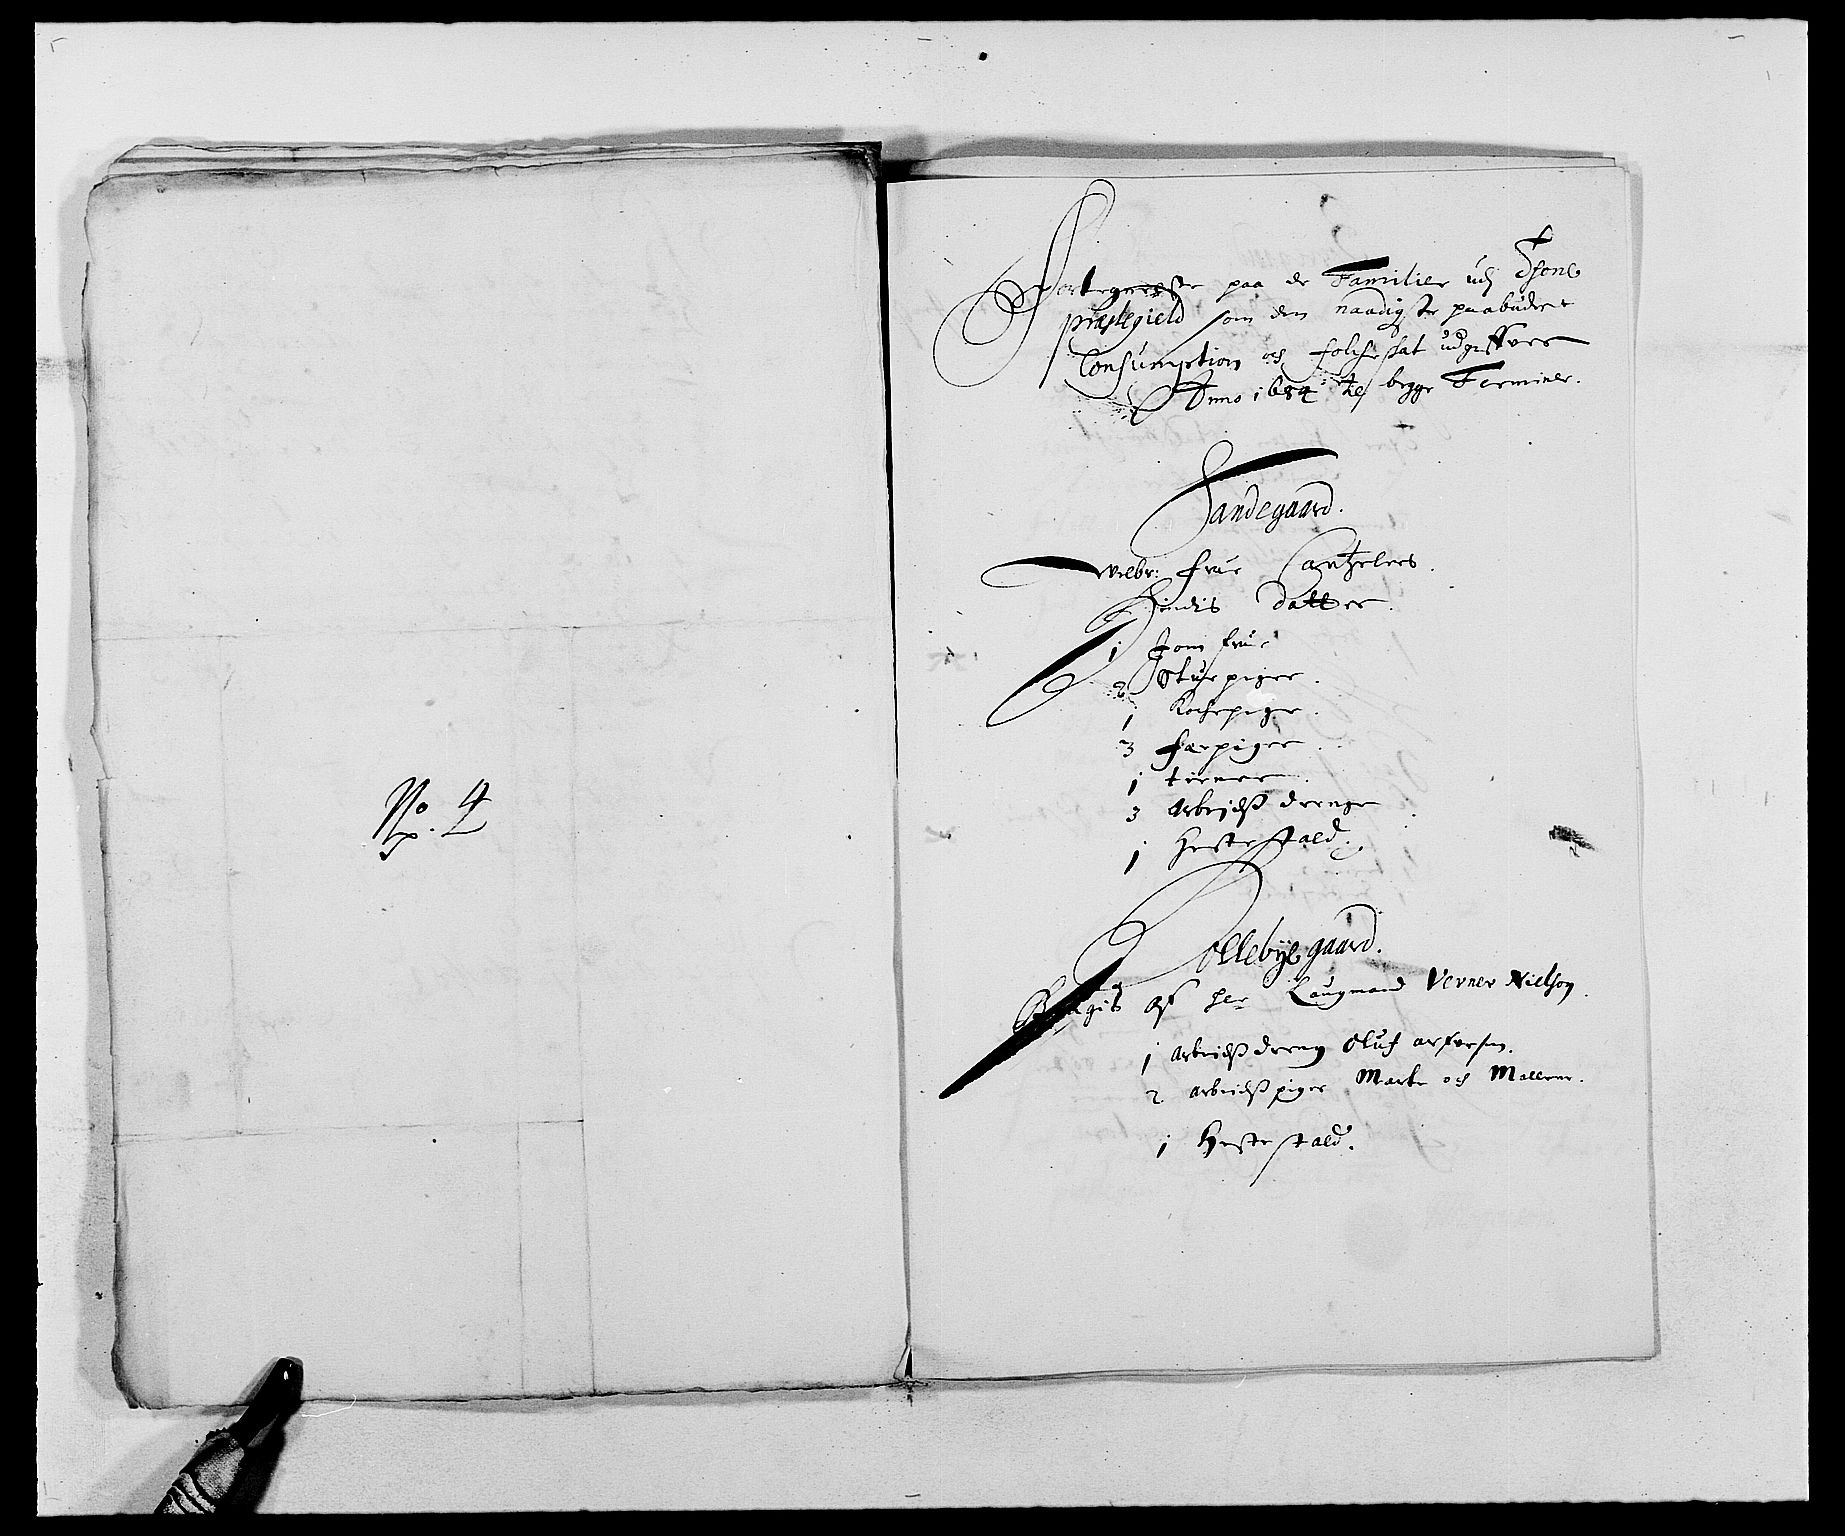 No. 4
Fortegnelse paa de Familier udj Thone
præstegield som den naadigste paabudne
Consumption och folcheskat udgiffuer
Anno 1684 til begge Terminer.
Sandegaard.
Welbr: Frue Cantzelers.
Hindis Datter.
1 Jomfrue
2 Stuepiger.
1 Kochepige.
3 Færpiger.
1 tienner.
3 Arbejdsdrenge
1 Hestestald.
Collebye gaard.
Brugis af her Laugmand Verner Nielsøn.
1 arbeidsdreng Oluf
2 arbeidspiger Marte och Mallene.
1 Hestestald.